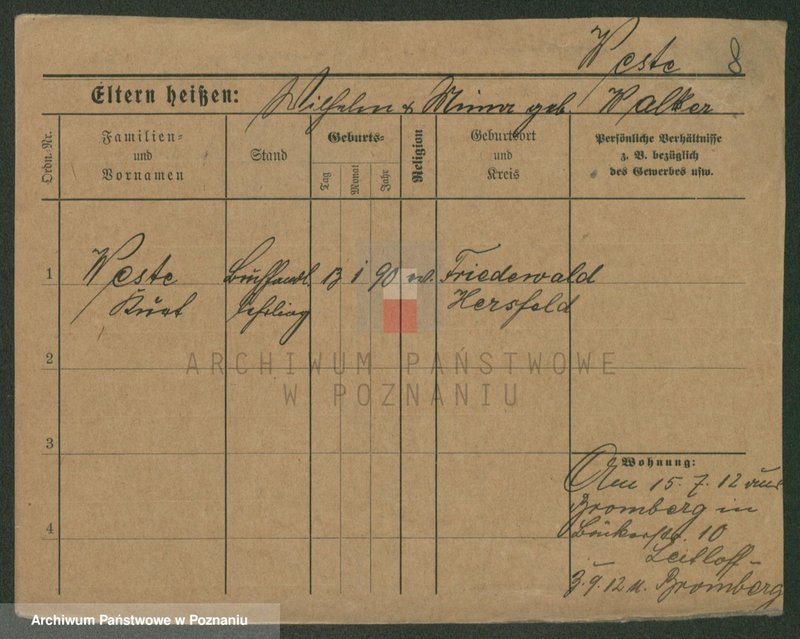 Weste 8
Eltern heißen: Wilhelm & Minna geb. Walker
Ordn.-Nr.
Familien-
und
Vornamen
Stand
Geburts-
Tag
Monat
Jahr
Religion
Geburtsort
und
Kreis
Persönliche Verhältnisse
z. B. bezüglich
des Gewerbes usw.
1 Weste Buchhandl. 13 1 90 ev. Friedewald
Kurt Lehrling Hersfeld
2
ARCHIWUM PAŃSTWOWE
W POZNANIU
3
Wohnung:
Am 15.7.12 aus
Bromberg in
Bäckerstr. 10
Leitloff
4
3.9.12 n. Bromberg
Archiwum Państwowe w Poznaniu